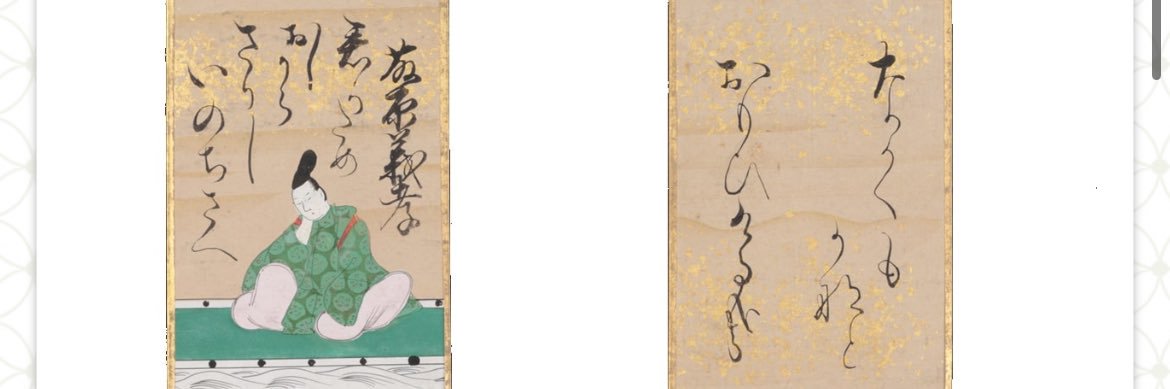 藤原義孝
君かため
おしから
さりし
いのちさへ
なかくも
かなと
おもひ
けるかな